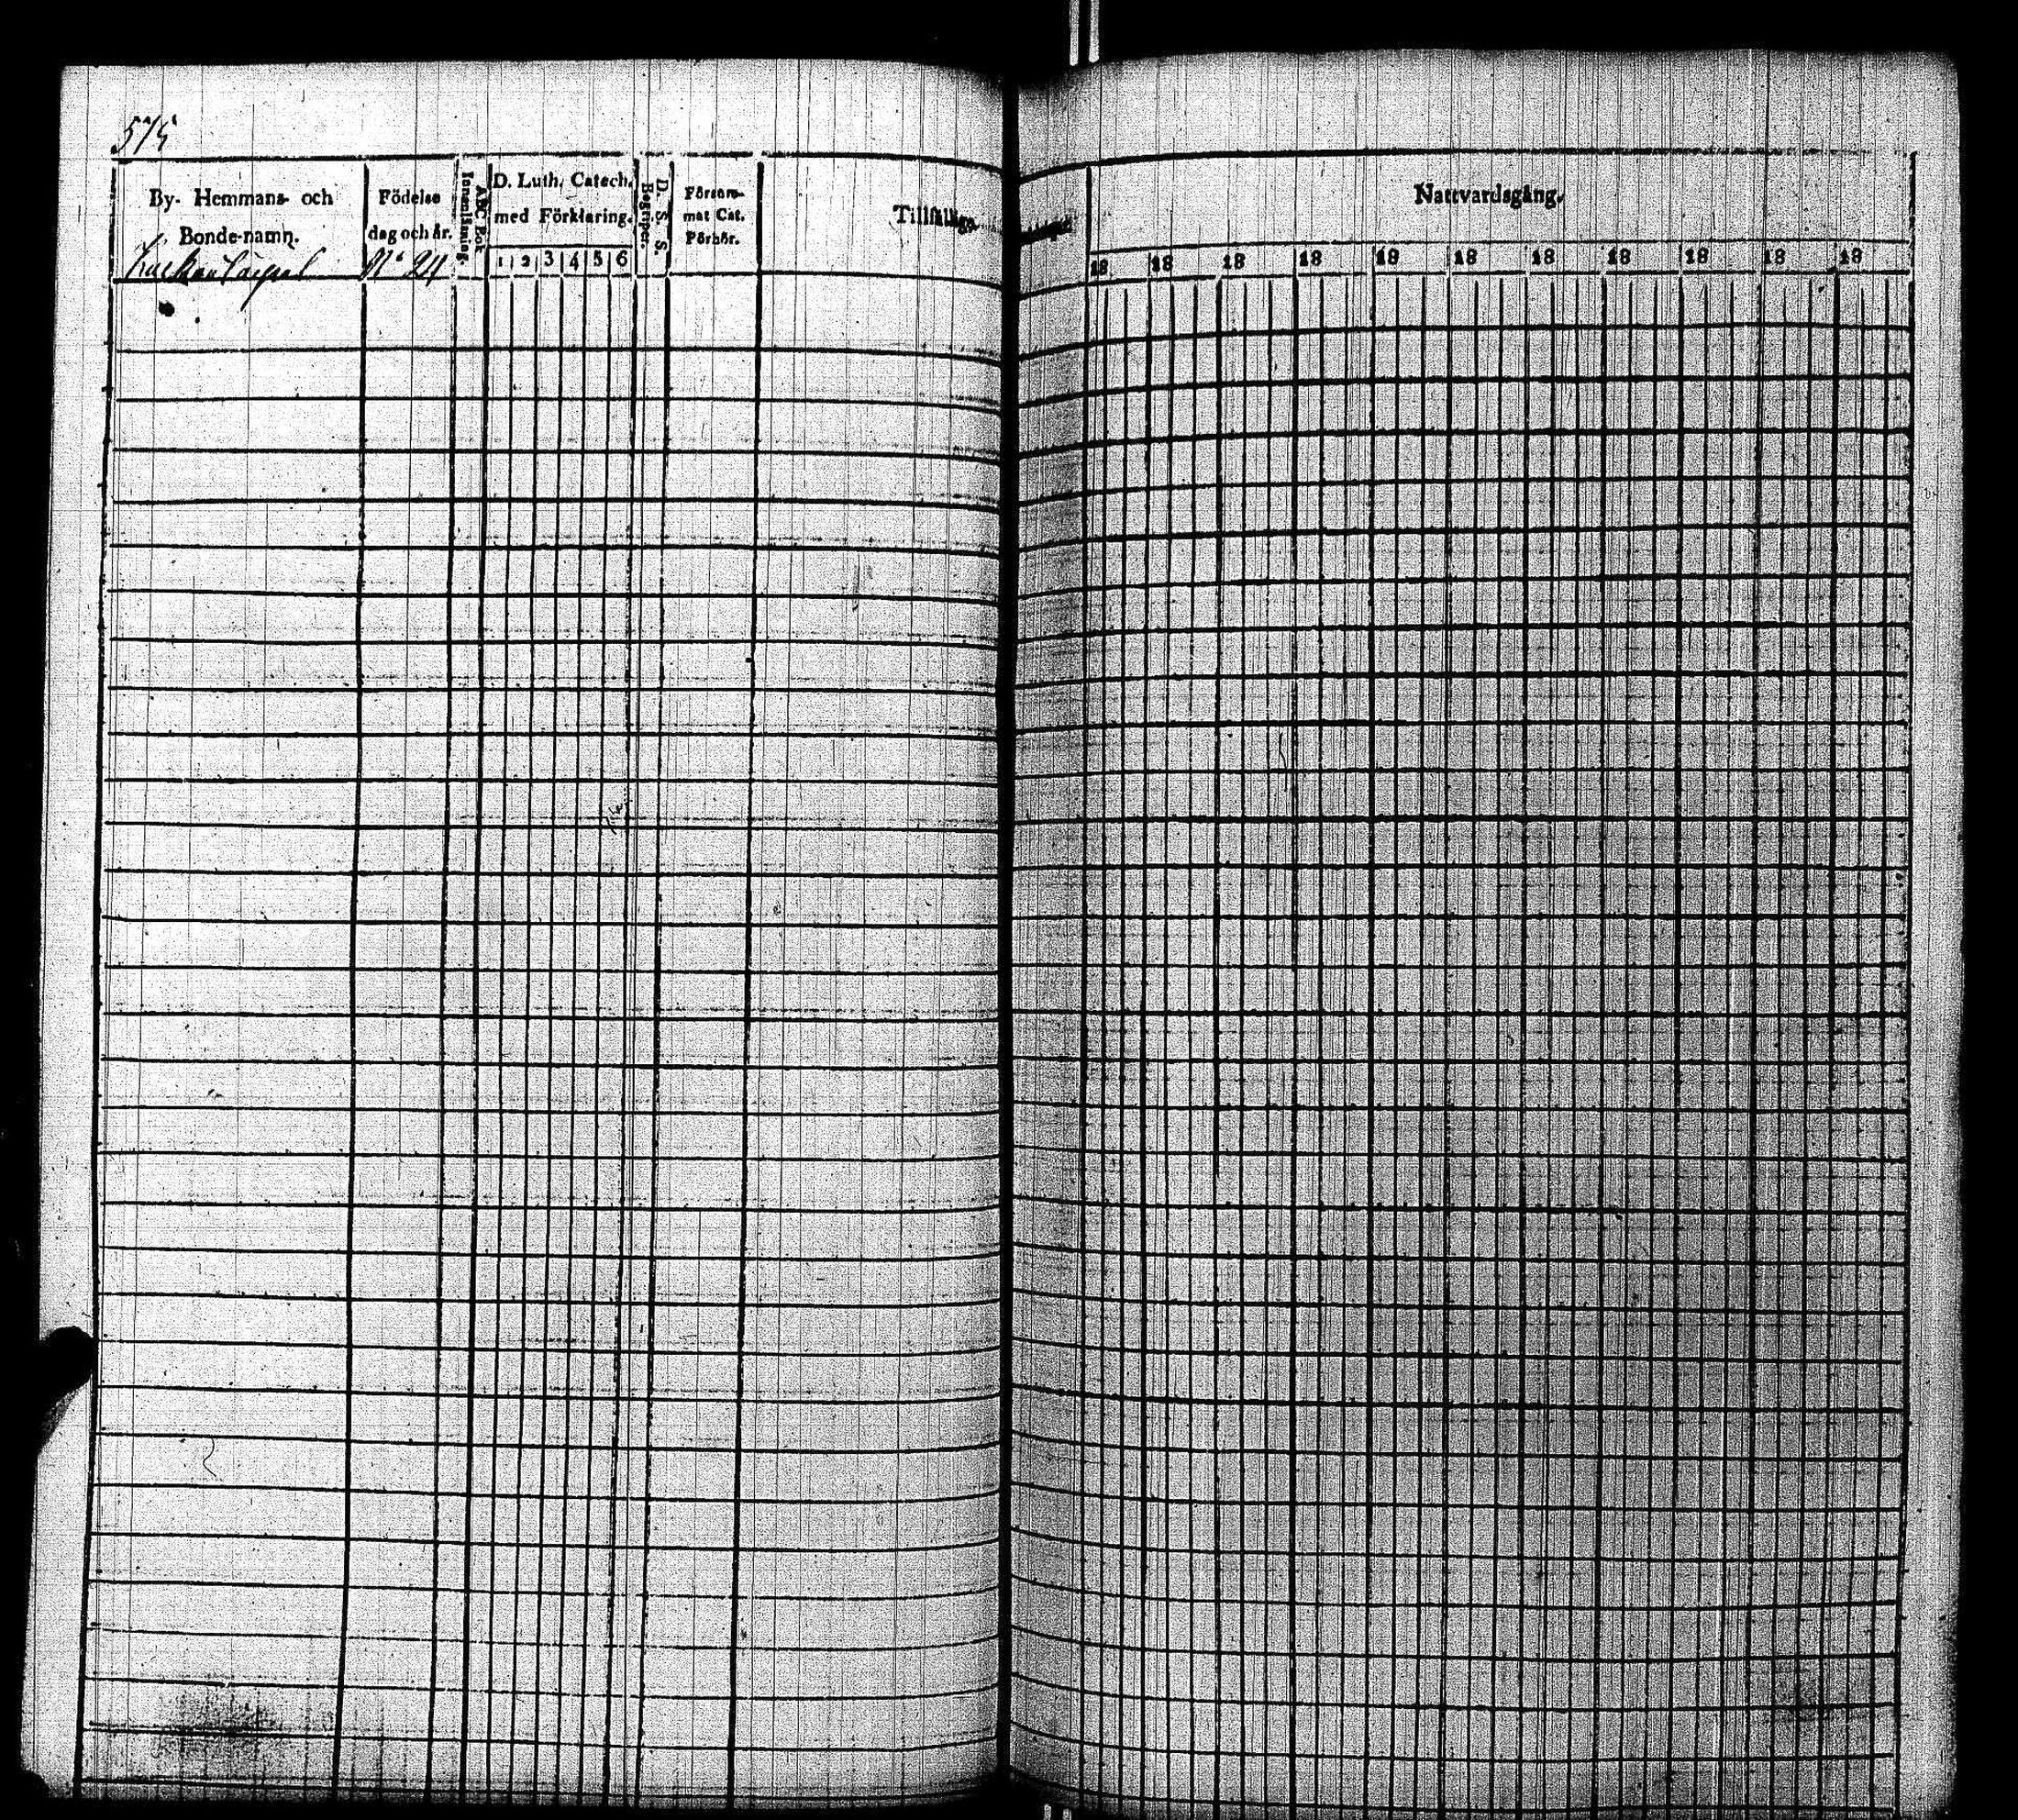 By- Hemmans- och
Bonde-namn.
Födelse
dag och år.
N:o 24
ABC Bok
Innanläsning.
D. Luth. Catech.
med Förklaring.
1 2 3 4 5 6
D. S. S.
Begreper.
Försum-
mat Cat.
Förhör.
Tillfällige
Nattvardsgång.
18 18 18 18 18 18 18 18 18 18 18